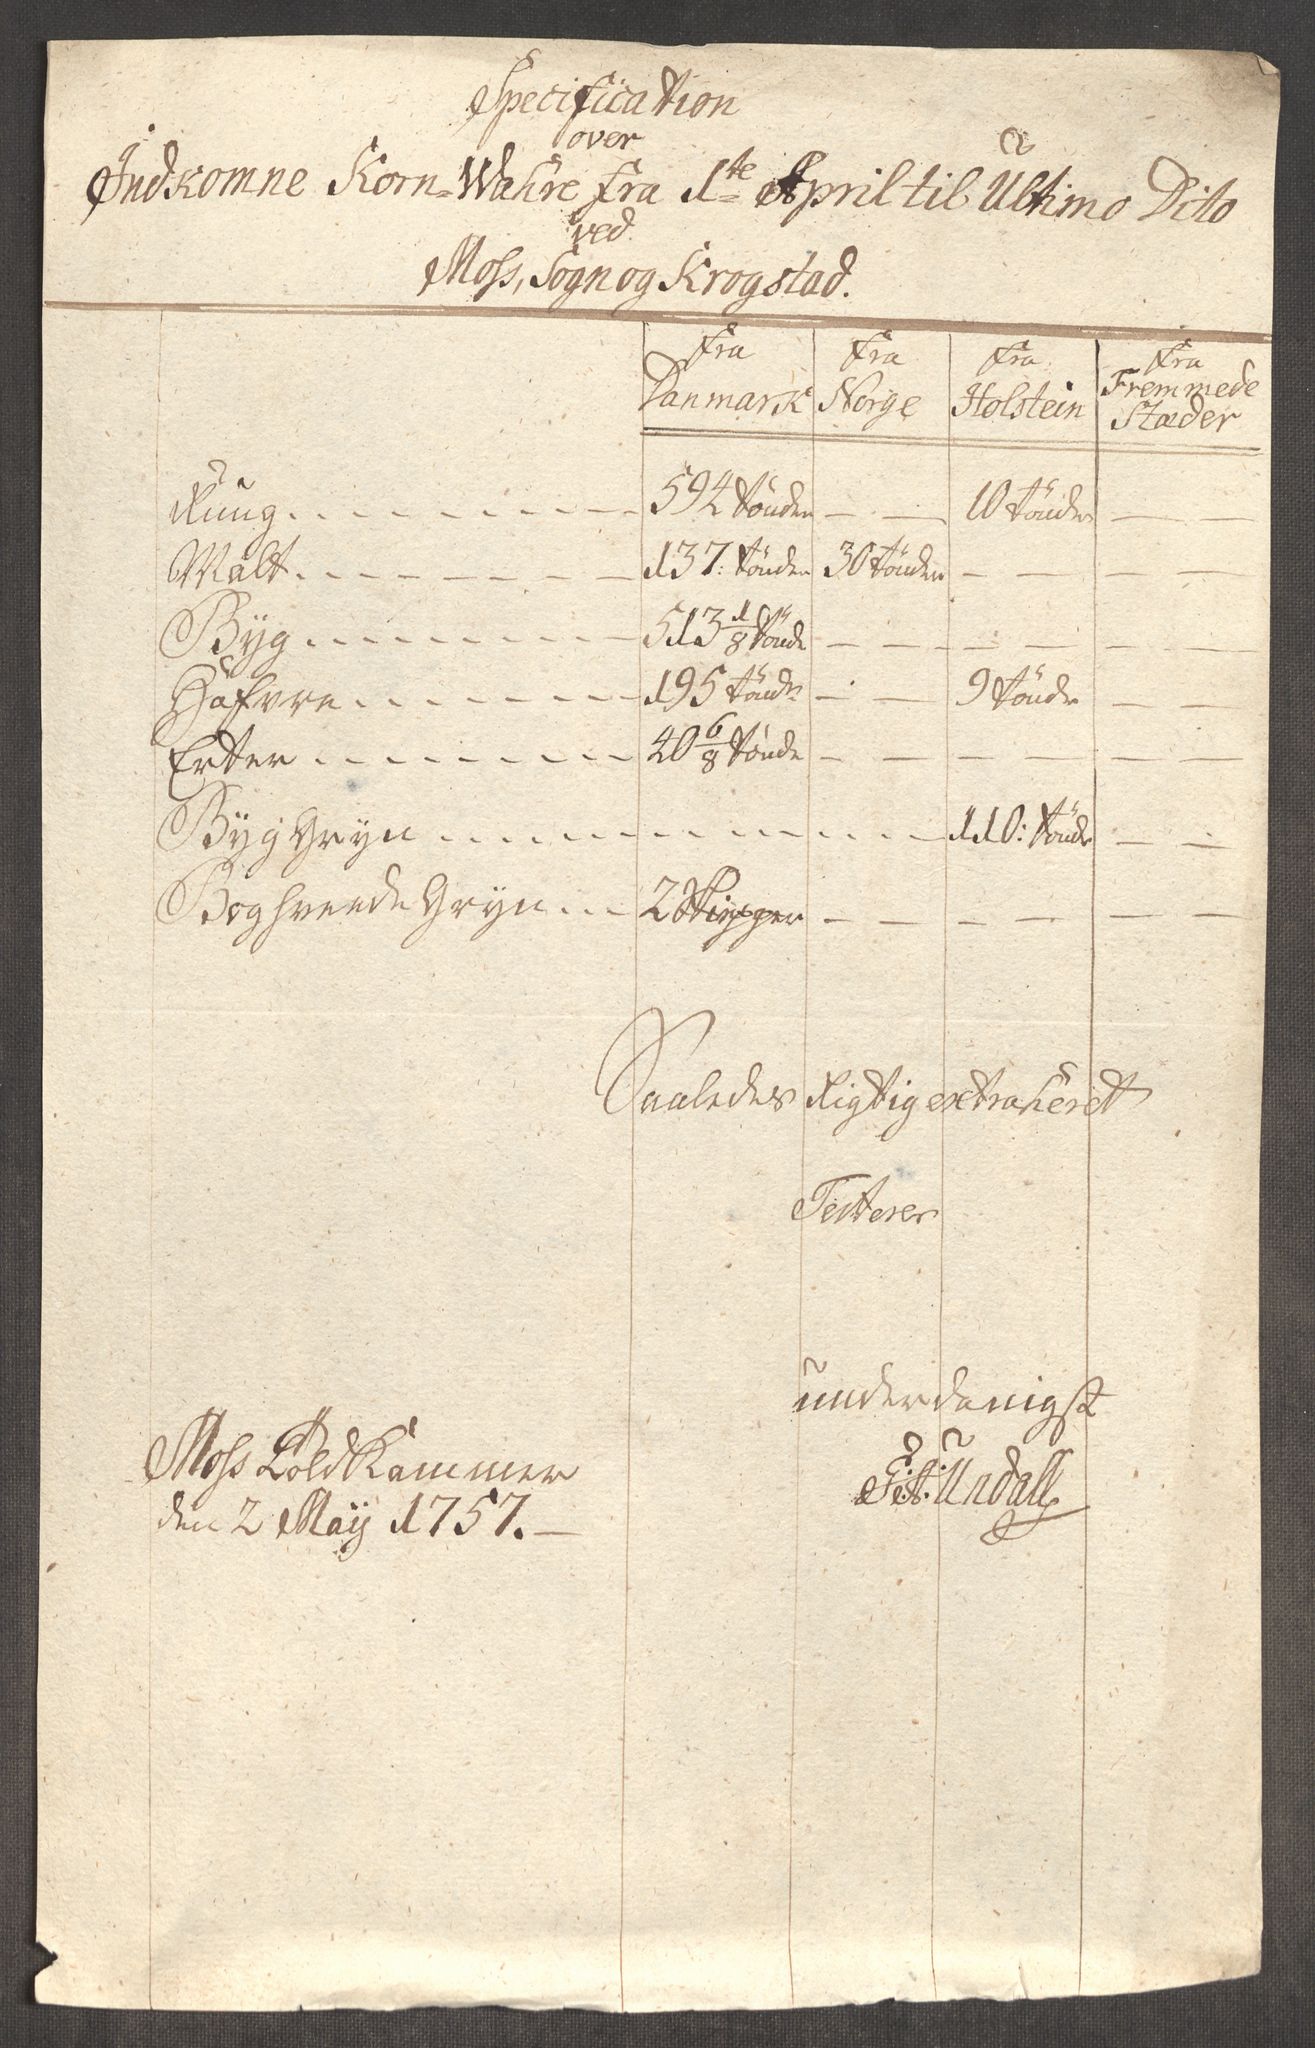 Specification
over
Indkomne Korn-Wahre fra 1te April til Ultimo Dito
ved
Moss, Sogn og Krogstad.
fra Danmark | fra Norge | fra Holstein | fra Fremmede Stæder
Rung . . . 594 tönder — — 10 tönder — —
Malt . . . 137: tönder 30 tönder — — — —
Byg . . . 513 1/8 tönde — — — — — —
Hafvre . . . 195 tönder — — 9 tönder — —
Erter . . . 40 6/8 tönde — — — — — —
Byg Gryn . . . 110: tönder — —
Boghveede Gryn . . . 2 Skipper — — — — — —
Saaledes Rigtig extraheret
Testerer
underdanigst
Moss Told Kammer
den 2 May 1757. —
Undall